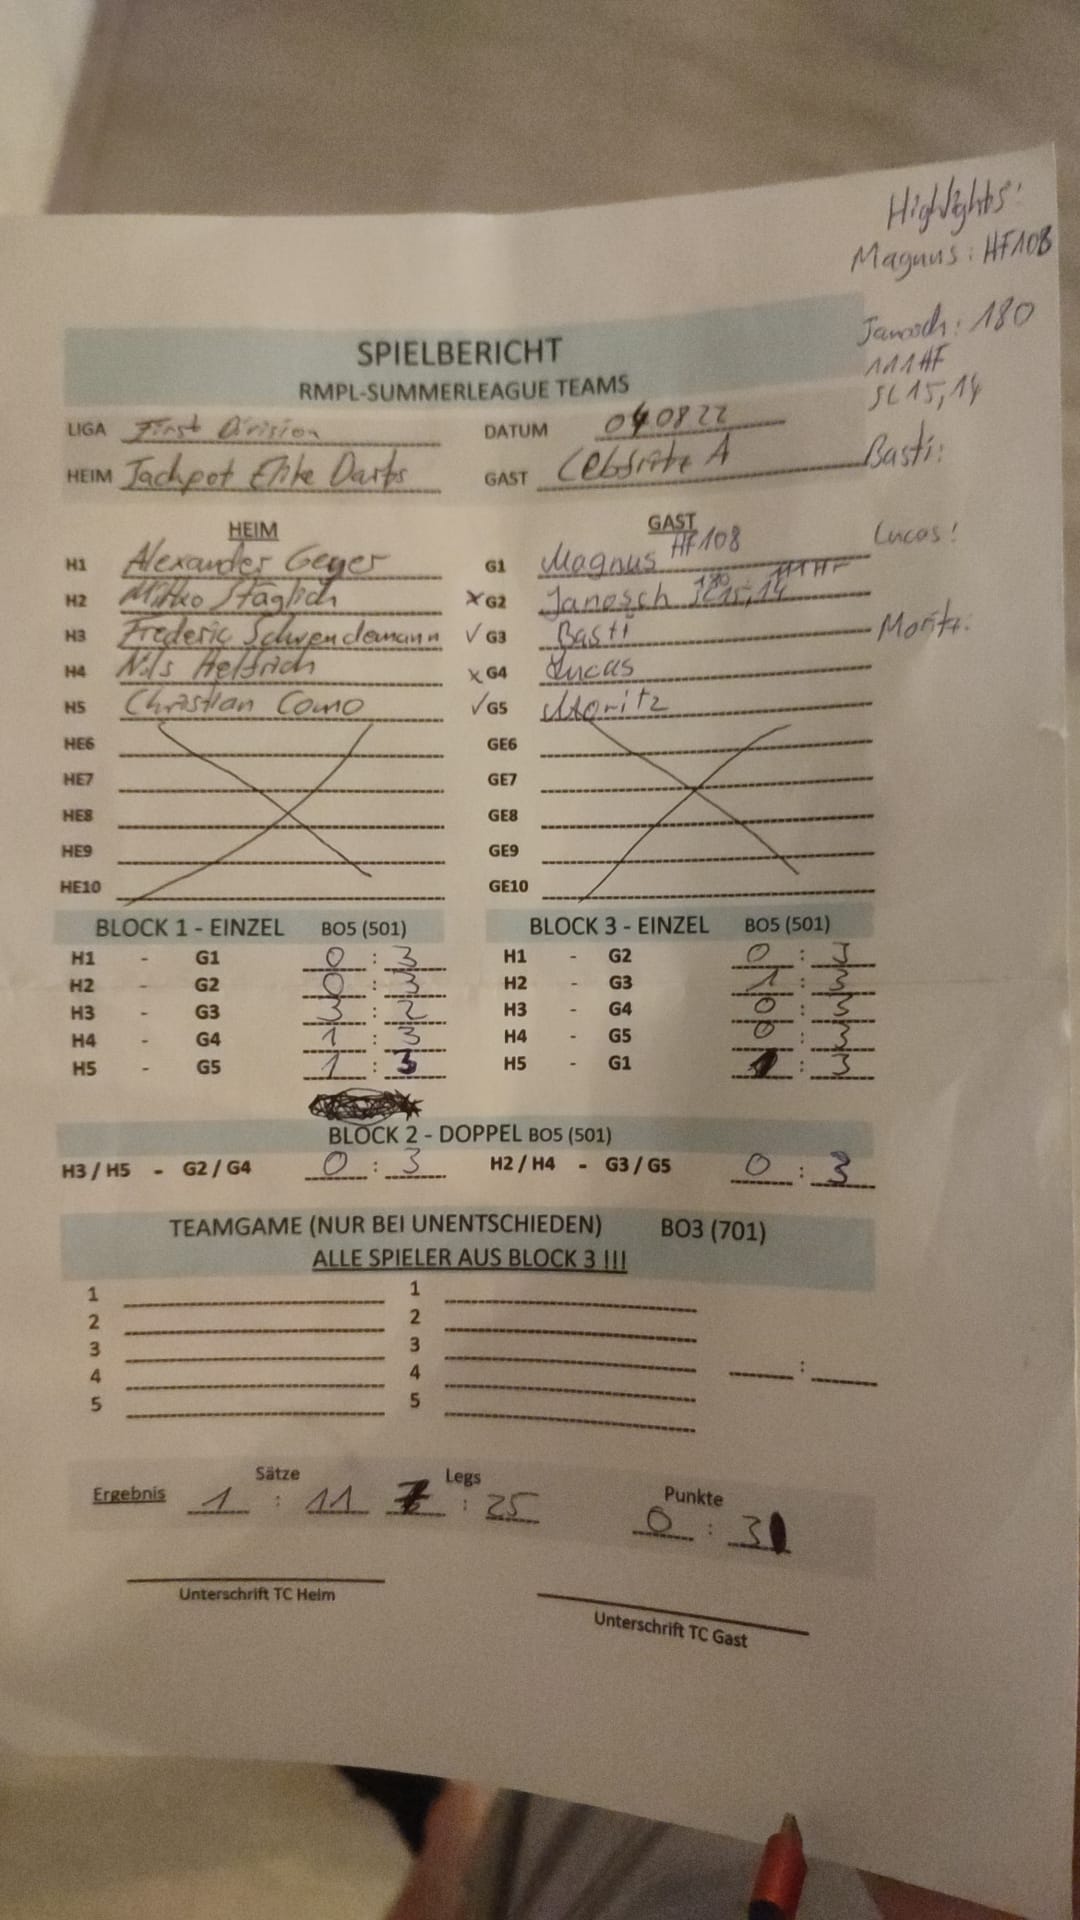 Highlights:
Magnus: HF108
Janosch: 180
111HF
SL15,14
Basti:
Lucas:
Moritz:
SPIELBERICHT
RMPL-SUMMERLEAGUE TEAMS
LIGA First Division
DATUM 040822
HEIM Jackpot Elite Darts
GAST A
HEIM
H1 Alexander Geyer
H2 Mirko Stäglich
H3 Frederic Schwendemann
H4 Nils Helfrich
H5 Christian Como
HE6
HE7
HE8
HE9
HE10
GAST
G1 Magnus HF108
X G2 Janosch 180 SL15,14 111HF
✓ G3 Basti
X G4 Lucas
✓ G5 Moritz
GE6
GE7
GE8
GE9
GE10
BLOCK 1 - EINZEL BO5 (501)
H1 - G1 0 : 3
H2 - G2 0 : 3
H3 - G3 3 : 2
H4 - G4 1 : 3
H5 - G5 1 : 3
BLOCK 3 - EINZEL BO5 (501)
H1 - G2 0 : 3
H2 - G3 1 : 3
H3 - G4 0 : 3
H4 - G5 0 : 3
H5 - G1 1 : 3
BLOCK 2 - DOPPEL BO5 (501)
H3 / H5 - G2 / G4 0 : 3
H2 / H4 - G3 / G5 0 : 3
TEAMGAME (NUR BEI UNENTSCHIEDEN) BO3 (701)
ALLE SPIELER AUS BLOCK 3 !!!
1 1
2 2
3 3
4 4 :
5 5
Sätze Legs Punkte
Ergebnis 1 : 11 7 : 25 0 : 3
Unterschrift TC Heim
Unterschrift TC Gast